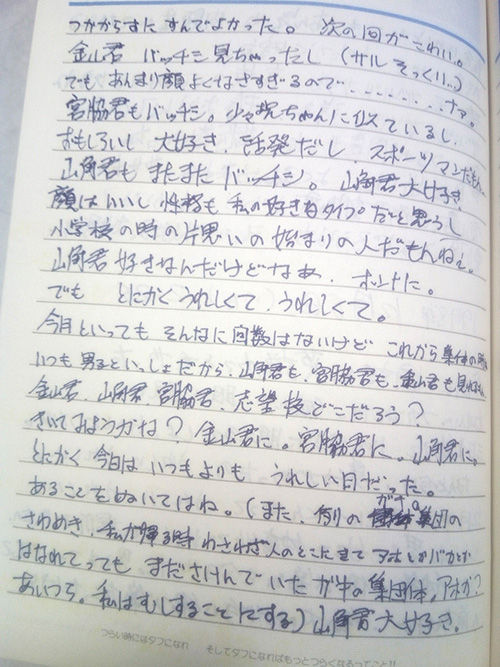 つかからずにすんでよかった。 次の回がこわい。
金山君 バッチシ見ちゃったし (サルそっくし..)
でもあんまり顔よくなさすぎるので........ナァ。
宮脇君もバッチシ。少々兄ちゃんに似ているし、
おもしろいし 大好き、活発だし、スポーツマンだもん。
山角君もまたまたバッチシ。 山角君大好き。
顔はいいし 性格も 私の好きなタイプだと思うし
小学校の時の片思いの始まりの人だもんねぇ。
山角君好きなんだけどなあ、 ホントに。
でも とにかくうれしくて、うれしくて。
今月といっても そんなに回数はないけど これから集体の時は
いつも男子といっしょだから、山角君も、宮脇君も、金山君も見れるもん
金山君、山角君、宮脇君、志望校どこだろう?
きいてみようかな? 金山君に。宮脇君に。山角君に。
とにかく 今日は いつもよりも うれしい日だった。
あることをぬいてはね。(また、例の ガキの集団の
さわめき、私が帰る時わざわざ人のとこにきて アホとかバカとか
はなれてっても まださけんでいた ガキの集団体。アホか?
あいつら。私はむしすることにする) 山角君大好き。
つらい時にはタフになれ そしてタフになればもっとつらくなるってこと!!